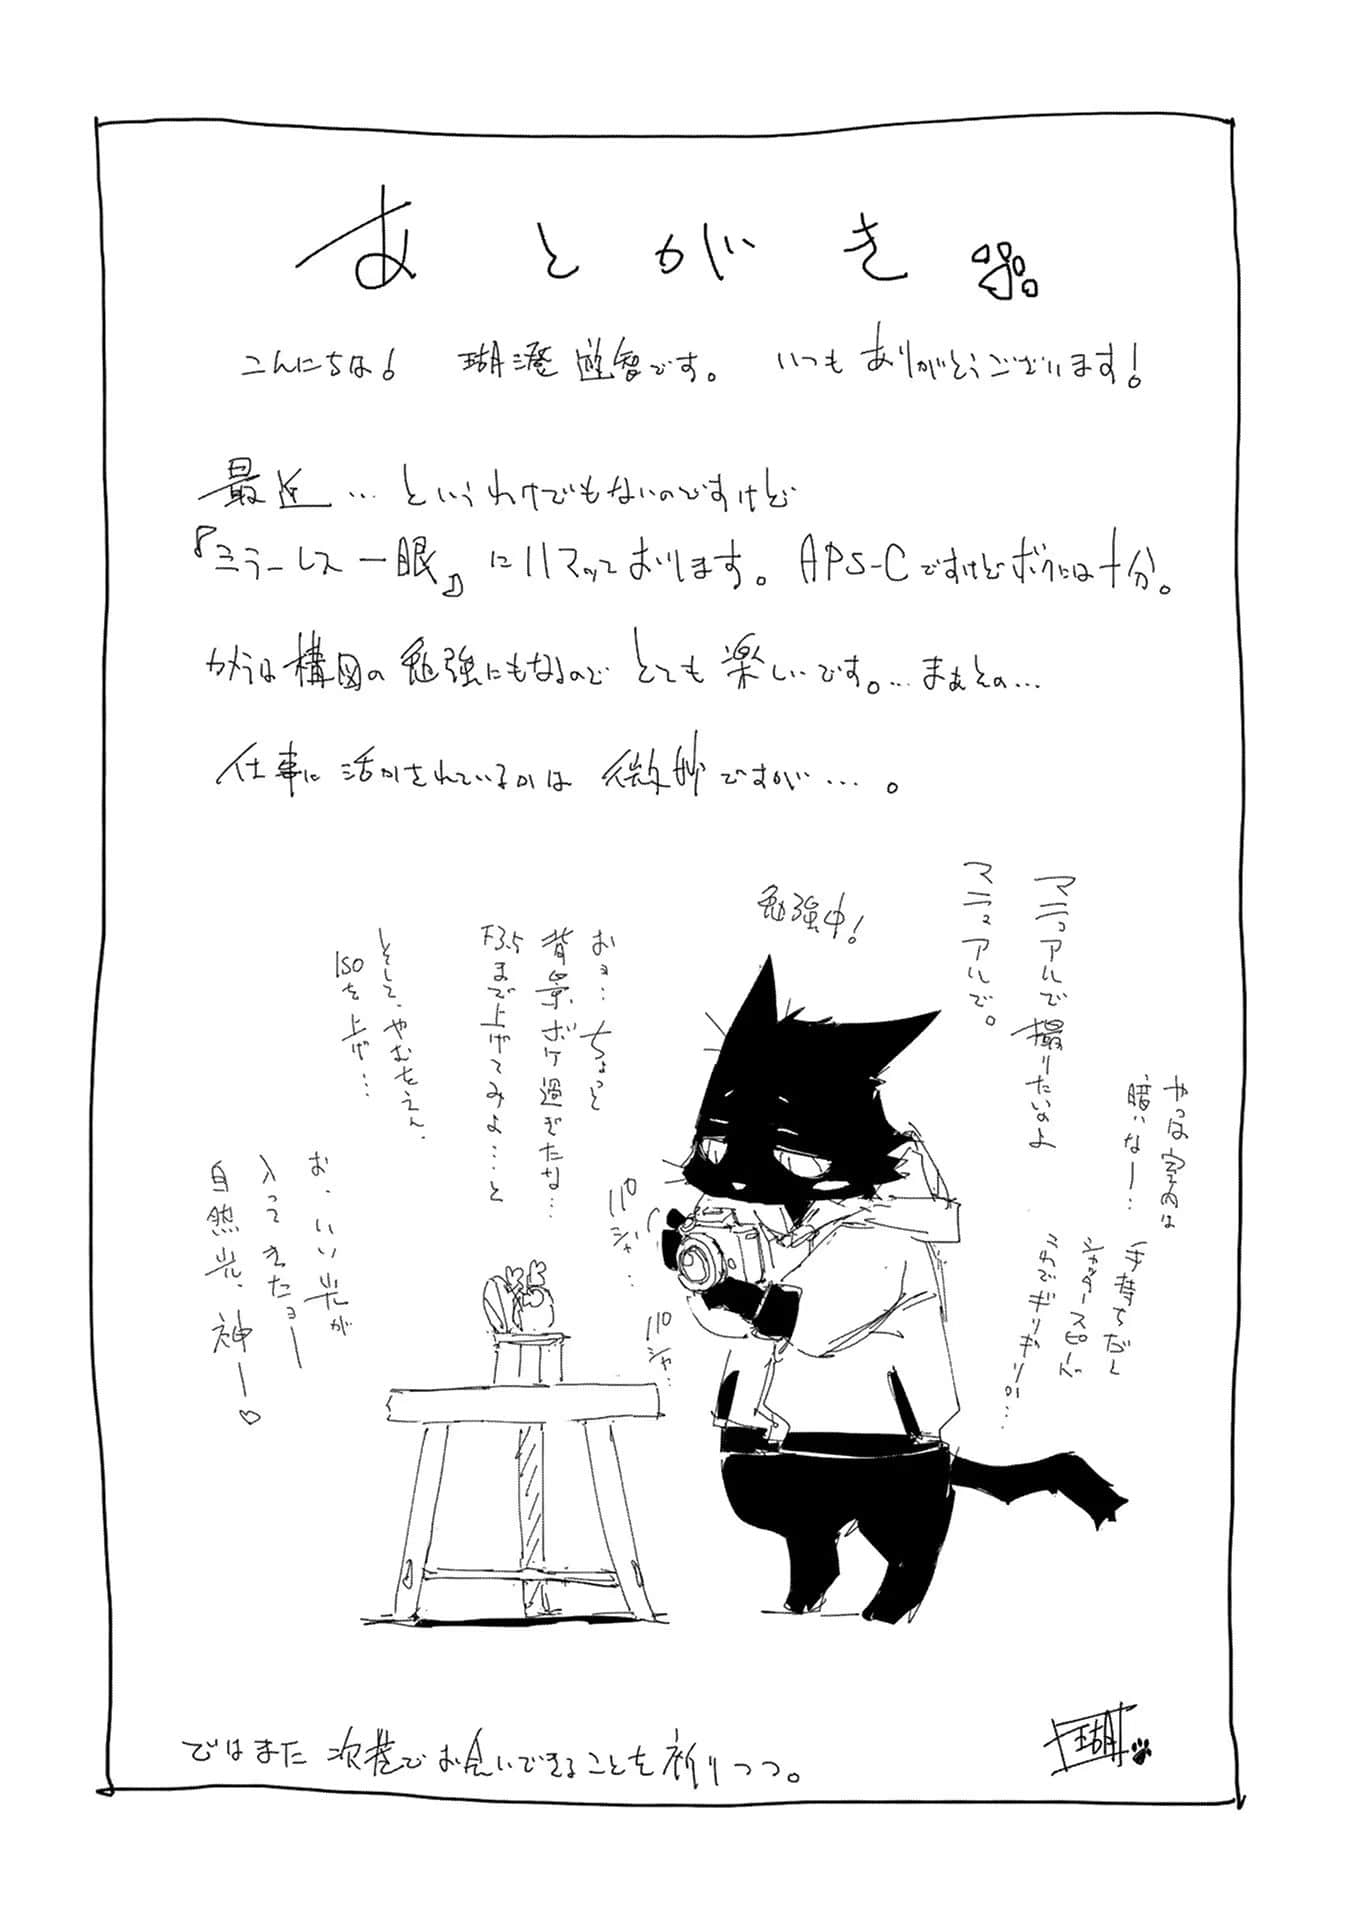 あとがき
こんにちは! 瑚澄遊智です。 いつもありがとうございます!
最近…というわけでもないのですけど
『ミラーレス一眼』にハマッております。APS-Cですけどボクには十分。
カメラは構図の勉強にもなるのでとても楽しいです。…まぁその…
仕事に活かされているかは微妙ですが…。
勉強中!
マニュアルで撮りたいのよ
マニュアルで。
やっぱ室内は
暗いなー…
手持ちだし
シャッタースピード
これでギリギリ…
おォ…ちょっと
背景ボケ過ぎたな…
F3.5まで上げてみよ…と
そして、やむをえん、
ISOを上げ…
パシャ…
パシャ…
お、いい光が
入ってきたョー
自然光、神ー♡
ではまた次巻でお会いできることを祈りつつ。
瑚